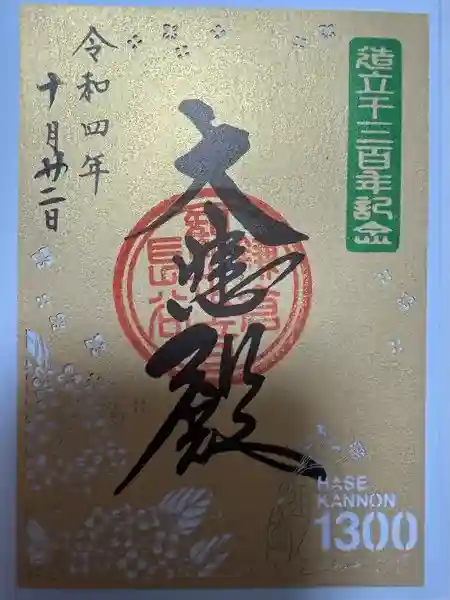 造立千三百年記念
大悲殿
鎌倉
長谷
令和四年
十月廿二日
HASE
KANNON
1300